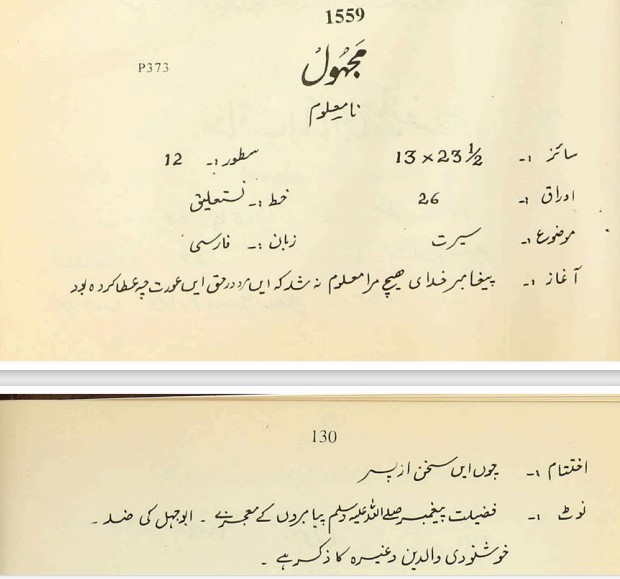 1559
مَجہُولُ
P373
نامعلوم
سائز :- 13 × 23½ سطور :- 12
اوراق :- 26 خط :- نستعلیق
موضوع :- سیرت زبان :- فارسی
آغاز :- پیغامبر خدای ھیچ مرا معلوم نہ شد کہ ایں مرد در حق ایں عورت چہ عطا کردہ بود
130
اختتام :- چوں ایں سخن از پسر
نوٹ :- فضیلت پیغمبر صلے اللہ علیہ وسلم پیامبروں کے معجزے ۔ ابوجہل کی ضد ۔
خوشنودی والدین وغیرہ کا ذکر ہے ۔